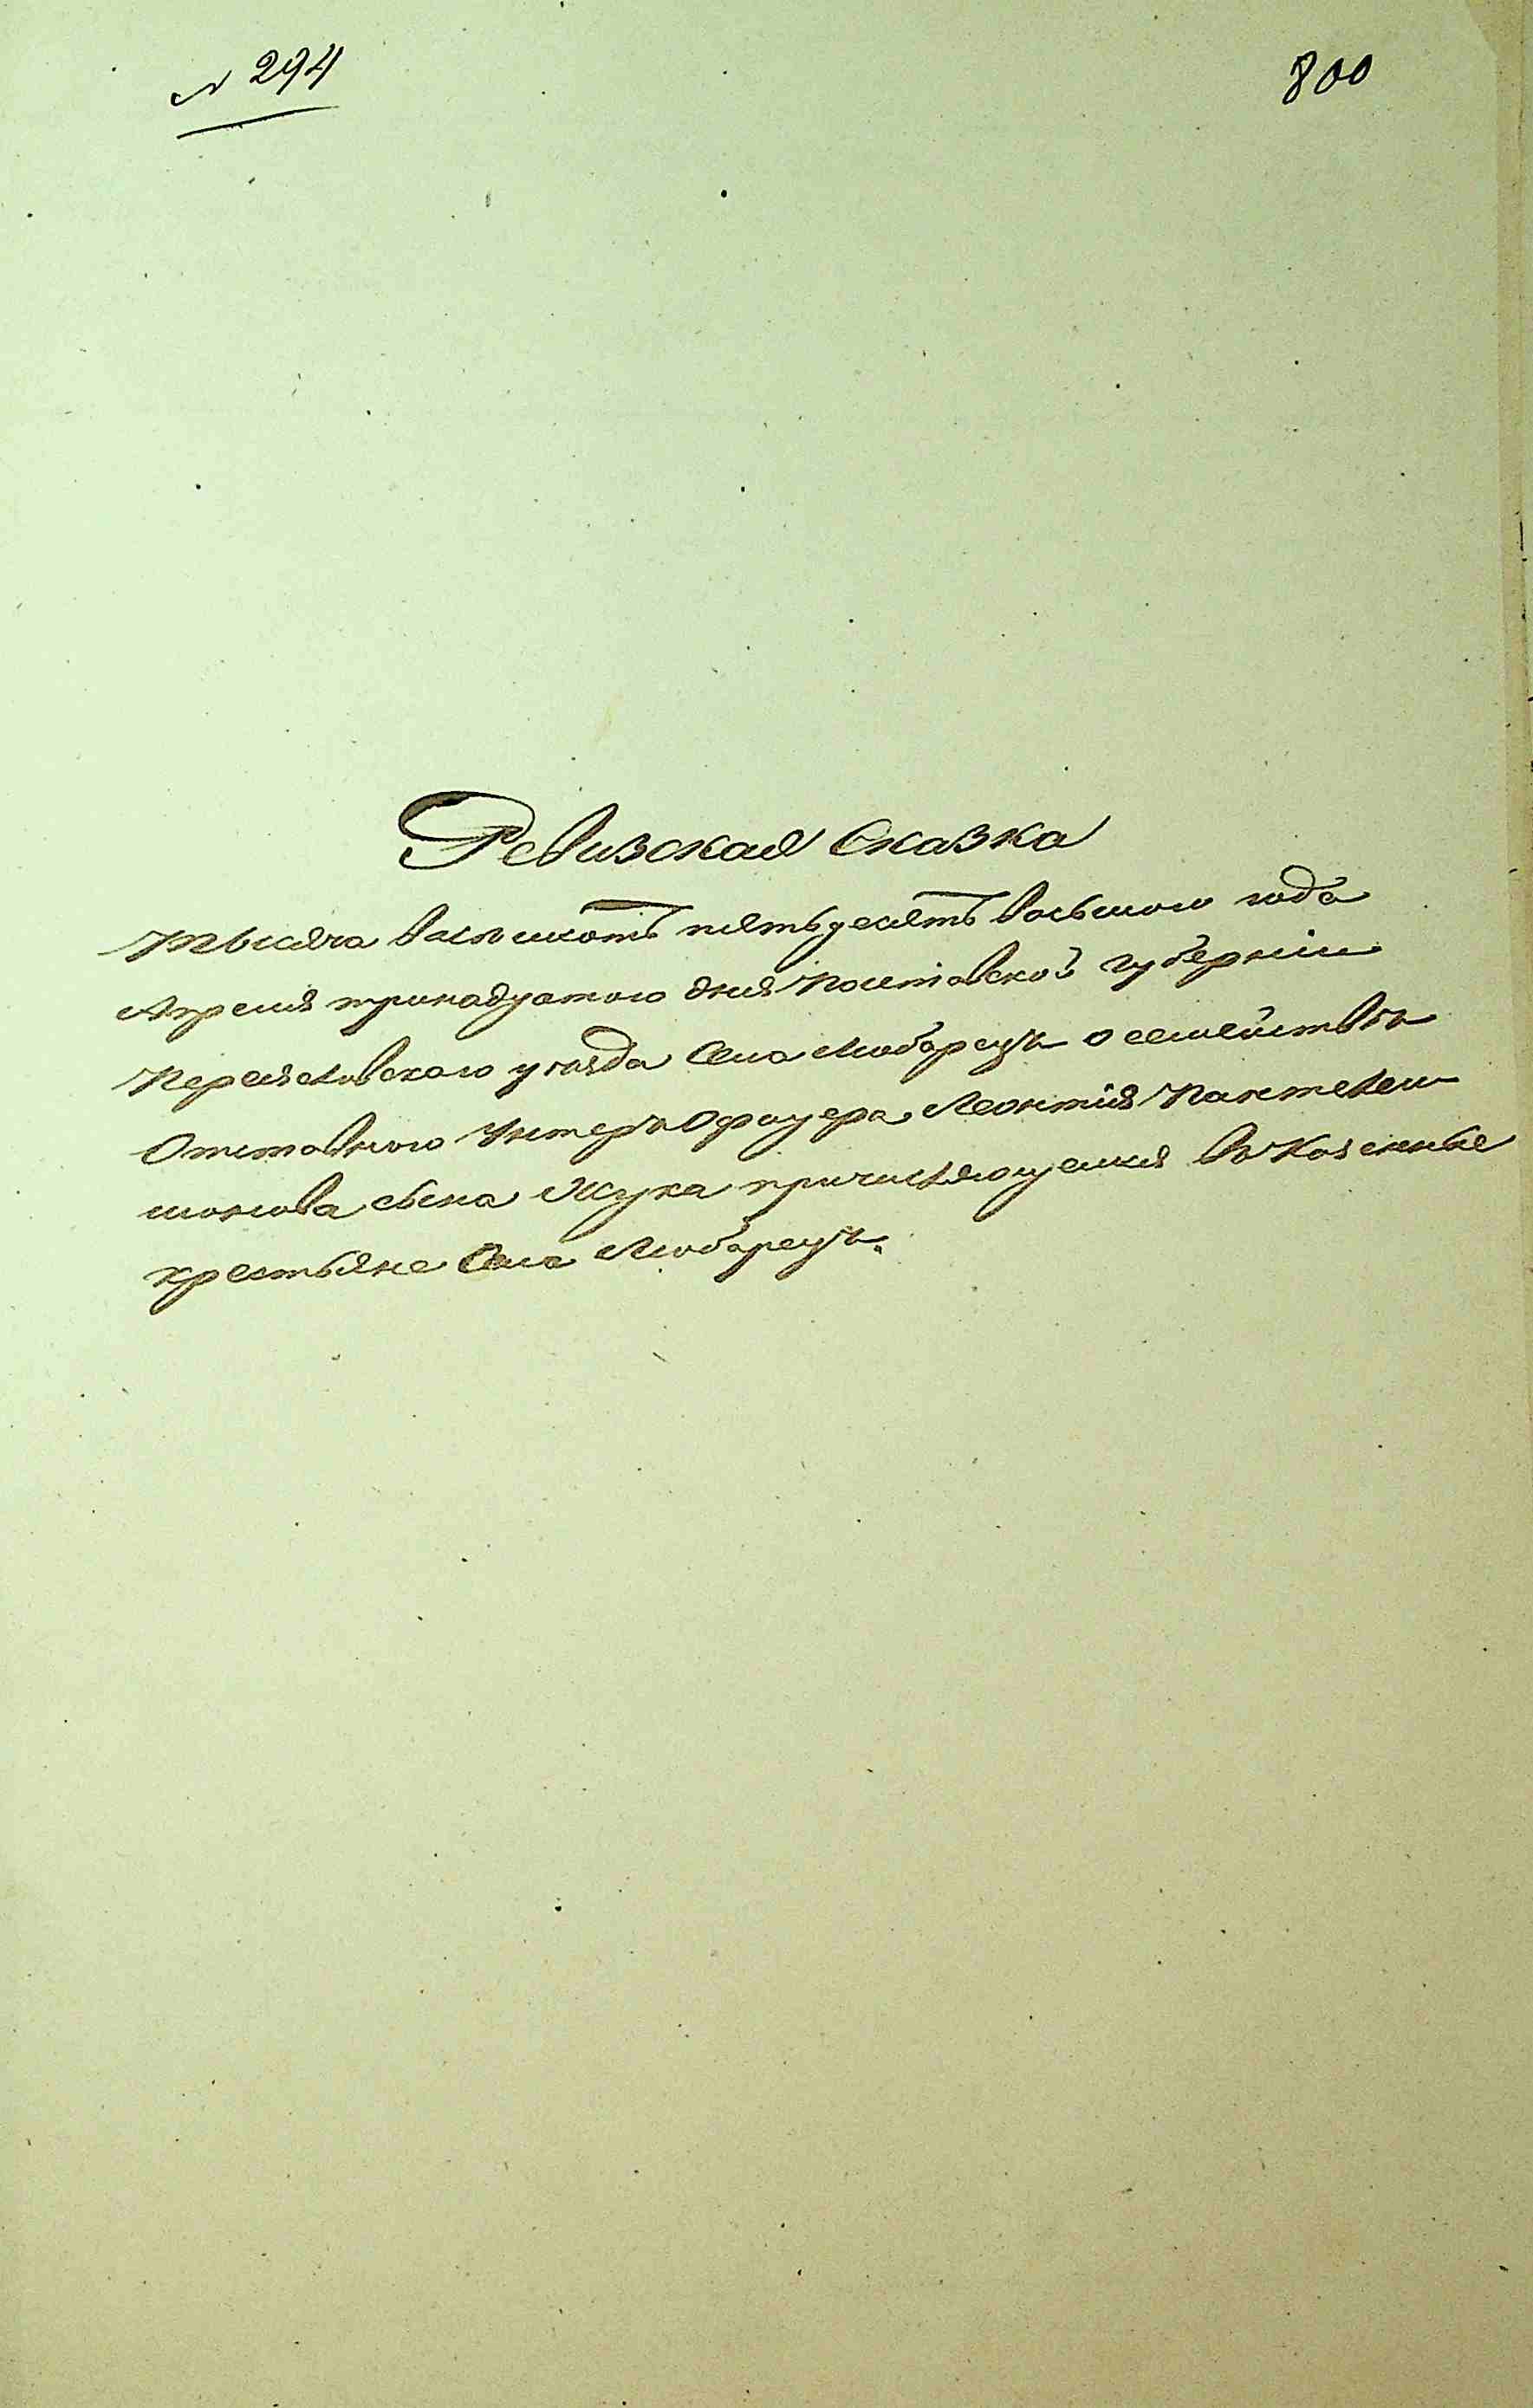 № 294
800
Ревизская Сказка
Тысяча Восемсотъ пятьдесятъ Восьмого года
Апреля тринадцатого дня Полтавской Губерніи
Переясловского уѣзда Села Любарецъ о семействѣ
Отставного Унтеръ Офицера Леонтия Пантелеи
монова сына Жука причисляющемся въ Казенные
крестьяне Села Любарецъ.